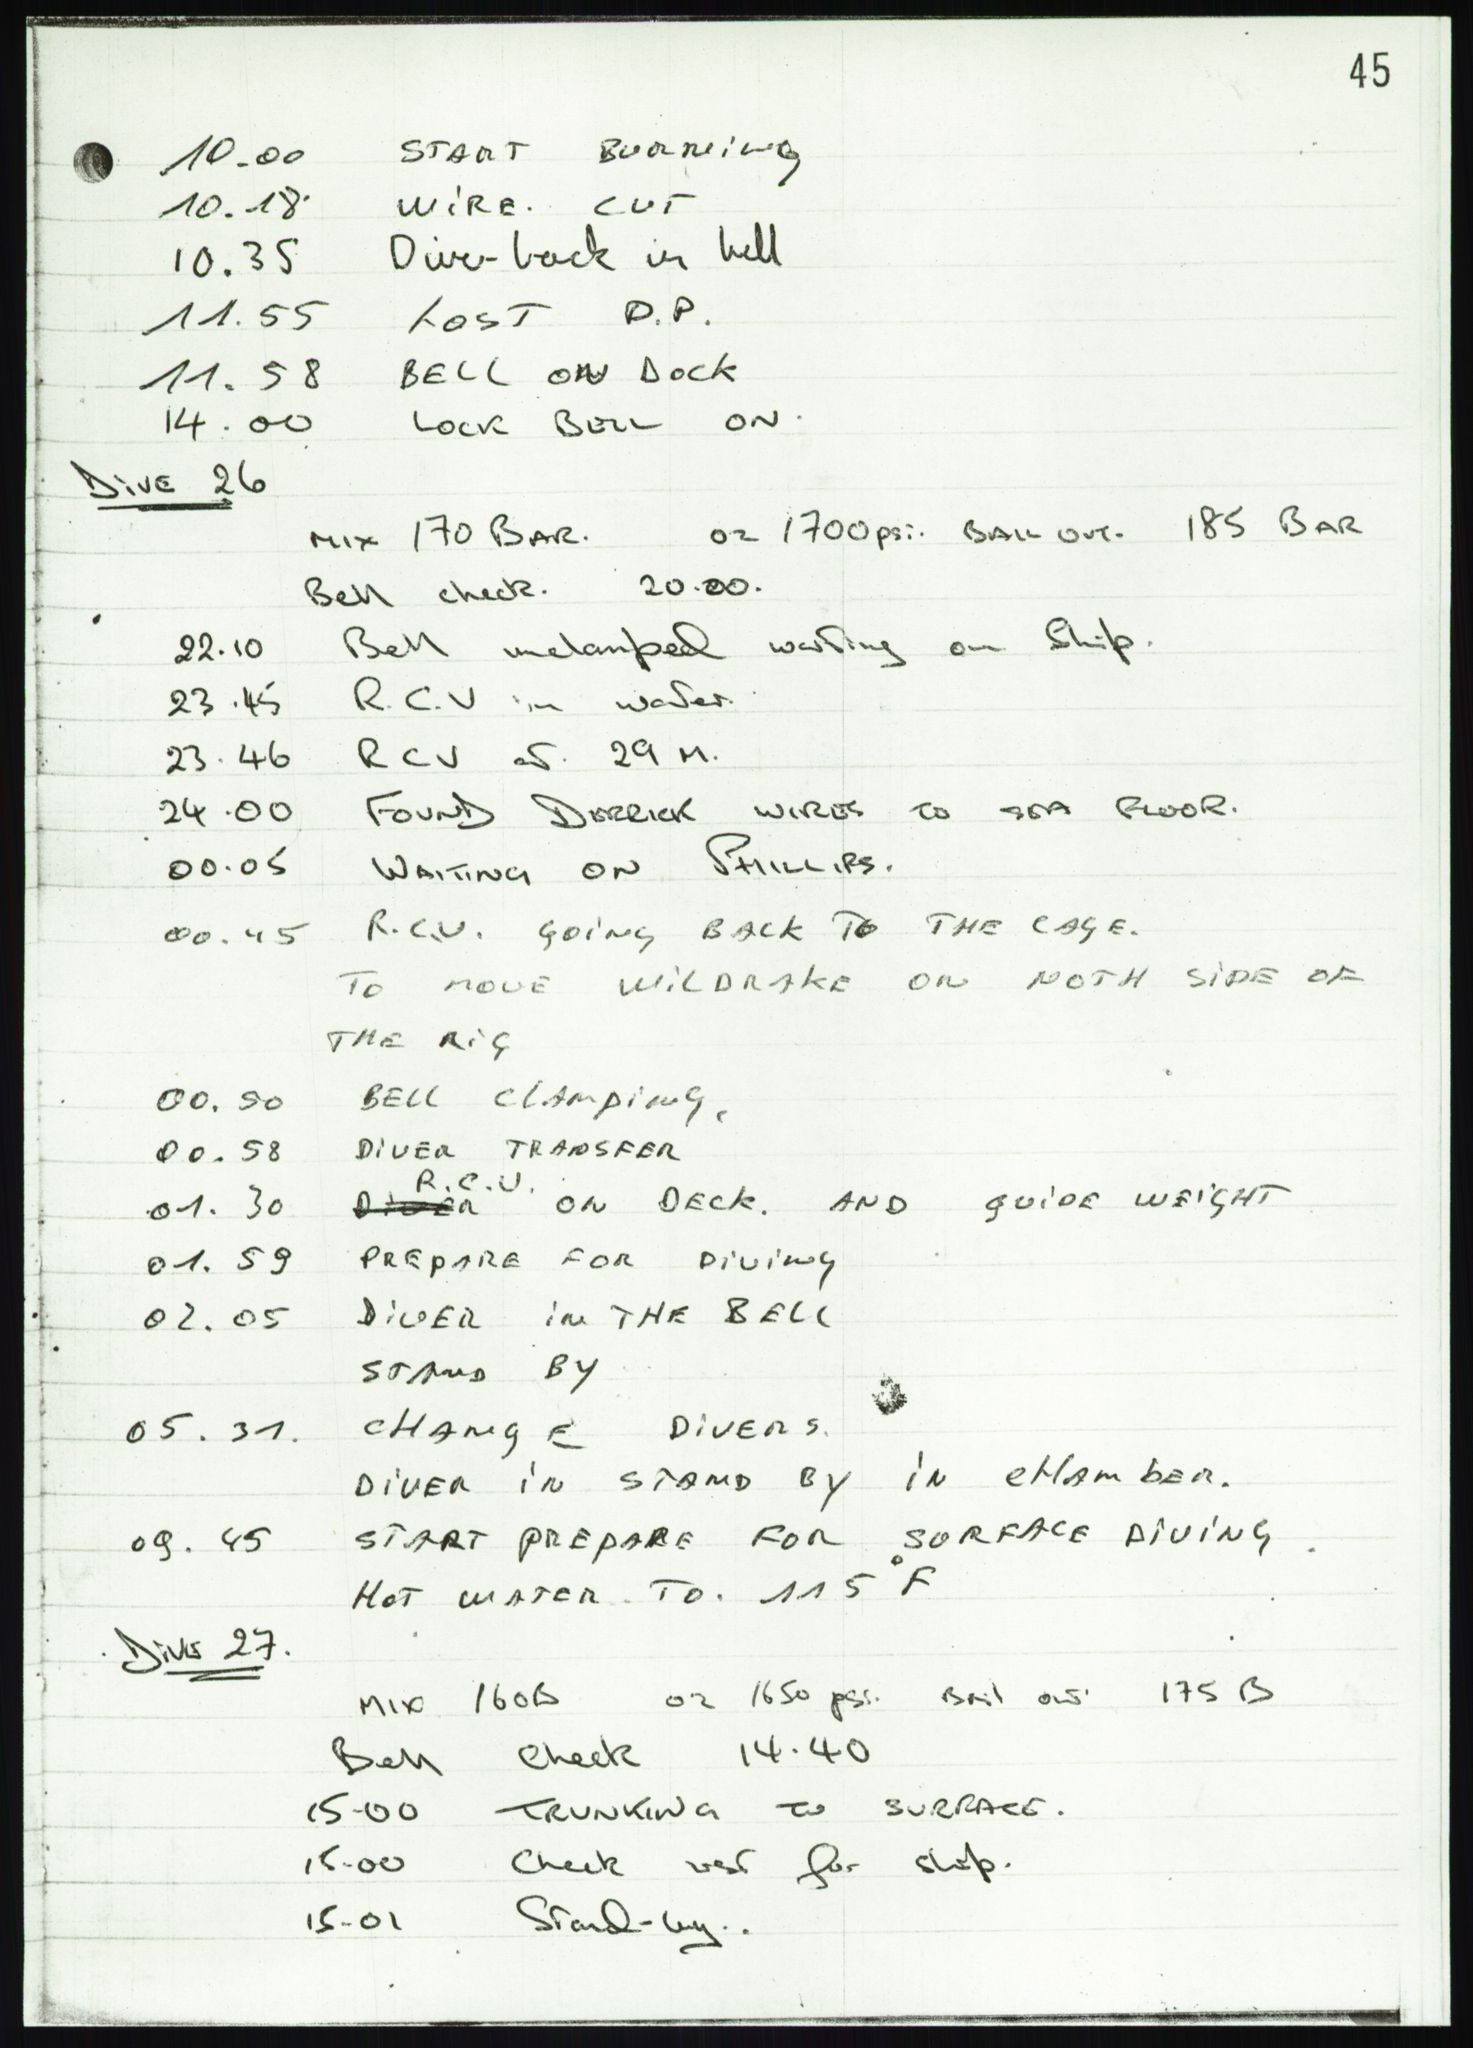 45
10.00 START BURNING
10.18 WIRE. CUT
10.35 Diver back in bell
11.55 LOST D.P.
11.58 BELL ON DOCK
14.00 LOCK BELL ON.
DIVE 26
MIX 170 BAR. O2 1700 psi. BAIL OUT. 185 BAR
Bell check. 20.00.
22.10 Bell unclamped waiting on Ship.
23.45 R.C.V in water.
23.46 RCV at. 29 M.
24.00 FOUND DERRICK WIRES TO SEA FLOOR.
00.05 WAITING ON PHILLIPS.
00.45 R.C.V. GOING BACK TO THE CAGE.
TO MOVE WILDRAKE ON NOTH SIDE OF
THE RIG
00.50 BELL CLAMPING.
00.58 DIVER TRANSFER
R.C.V.
01.30 DIVER ON DECK. AND GUIDE WEIGHT
01.59 PREPARE FOR DIVING
02.05 DIVER IN THE BELL
STAND BY
05.31. CHANGE DIVERS.
DIVER IN STAND BY IN CHAMBER.
09.45 START PREPARE FOR SURFACE DIVING.
HOT WATER TO. 115°F
DIVE 27.
MIX 160B O2 1650 psi. Bail out. 175 B
Bell Check 14.40
15-00 TRUNKING TO SURFACE.
15-00 Check for ship.
15-01 Stand-by..